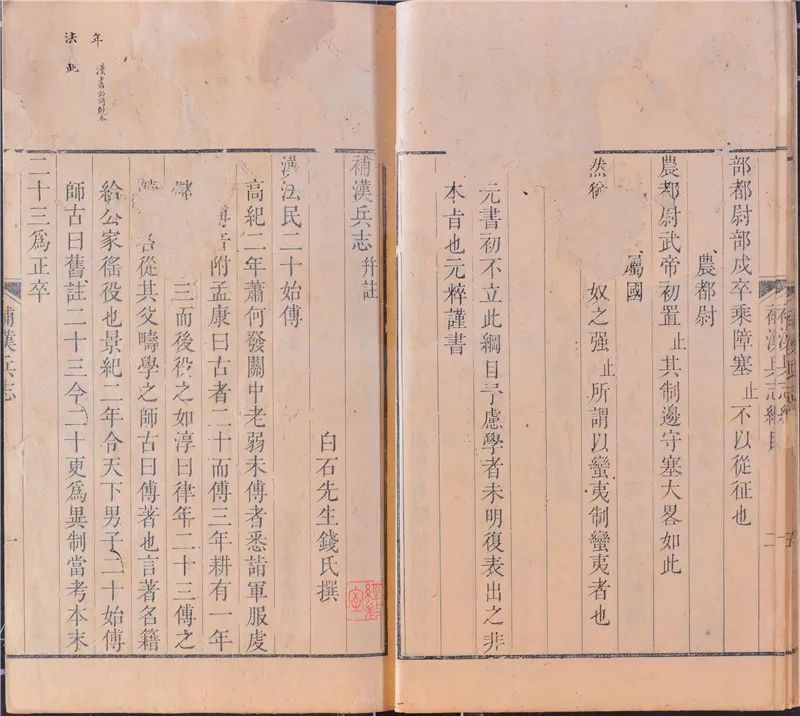 補漢兵志綱目
二
部都尉部戍卒乘障塞止不以從征也
農都尉
農都尉武帝初置止其制邊守塞大畧如此
屬國
然 奴之强止所謂以蠻夷制蠻夷者也
元書初不立此綱目予慮學者未明復表出之非
本㫖也元粹謹書
年
法此
補漢兵志 幷註
白石先生錢氏撰
漢法民二十始傅
高紀二年蕭何發關中老弱未傅者悉詣軍服虔
傅音附孟康曰古者二十而傅三年耕有一年
儲 三而後役之如淳曰律年二十三傅之
各從其父疇學之師古曰傅著也言著名籍
給公家徭役也景紀二年令天下男子二十始傅
師古曰舊註二十三今二十更爲異制當考本末
二十三爲正卒
補漢兵志
一